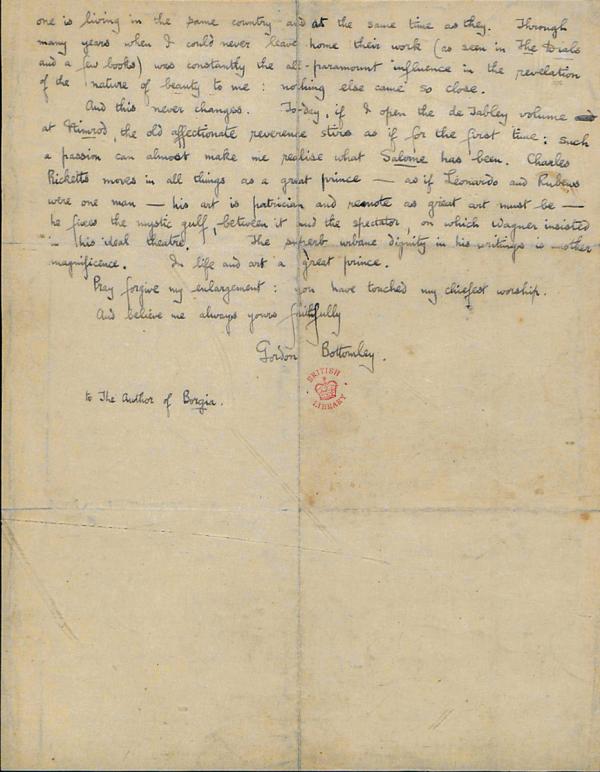 one is living in the same country and at the same time as they. Through
many years when I could never leave home their work (as seen in The Dials
and a few books) was constantly the all-paramount influence in the revelation
of the nature of beauty to me: nothing else came so close.
And this never changes. To-day, if I open the de Tabley volume
at Nimrod, the old affectionate reverence stirs as if for the first time: such
a passion can almost make me realise what Salome has been. Charles
Ricketts moves in all things as a great prince — as if Leonardo and Rubens
were one man — his art is patrician and remote as great art must be —
he fixes the mystic gulf, between it and the spectator, on which Wagner insisted
in his ideal theatre. The superb urbane dignity in his writings is another
magnificence. In life and art a great prince.
Pray forgive my enlargement: you have touched my chiefest worship.
And believe me always yours faithfully
Gordon Bottomley.
BRITISH
LIBRARY
to The Author of Borgia.